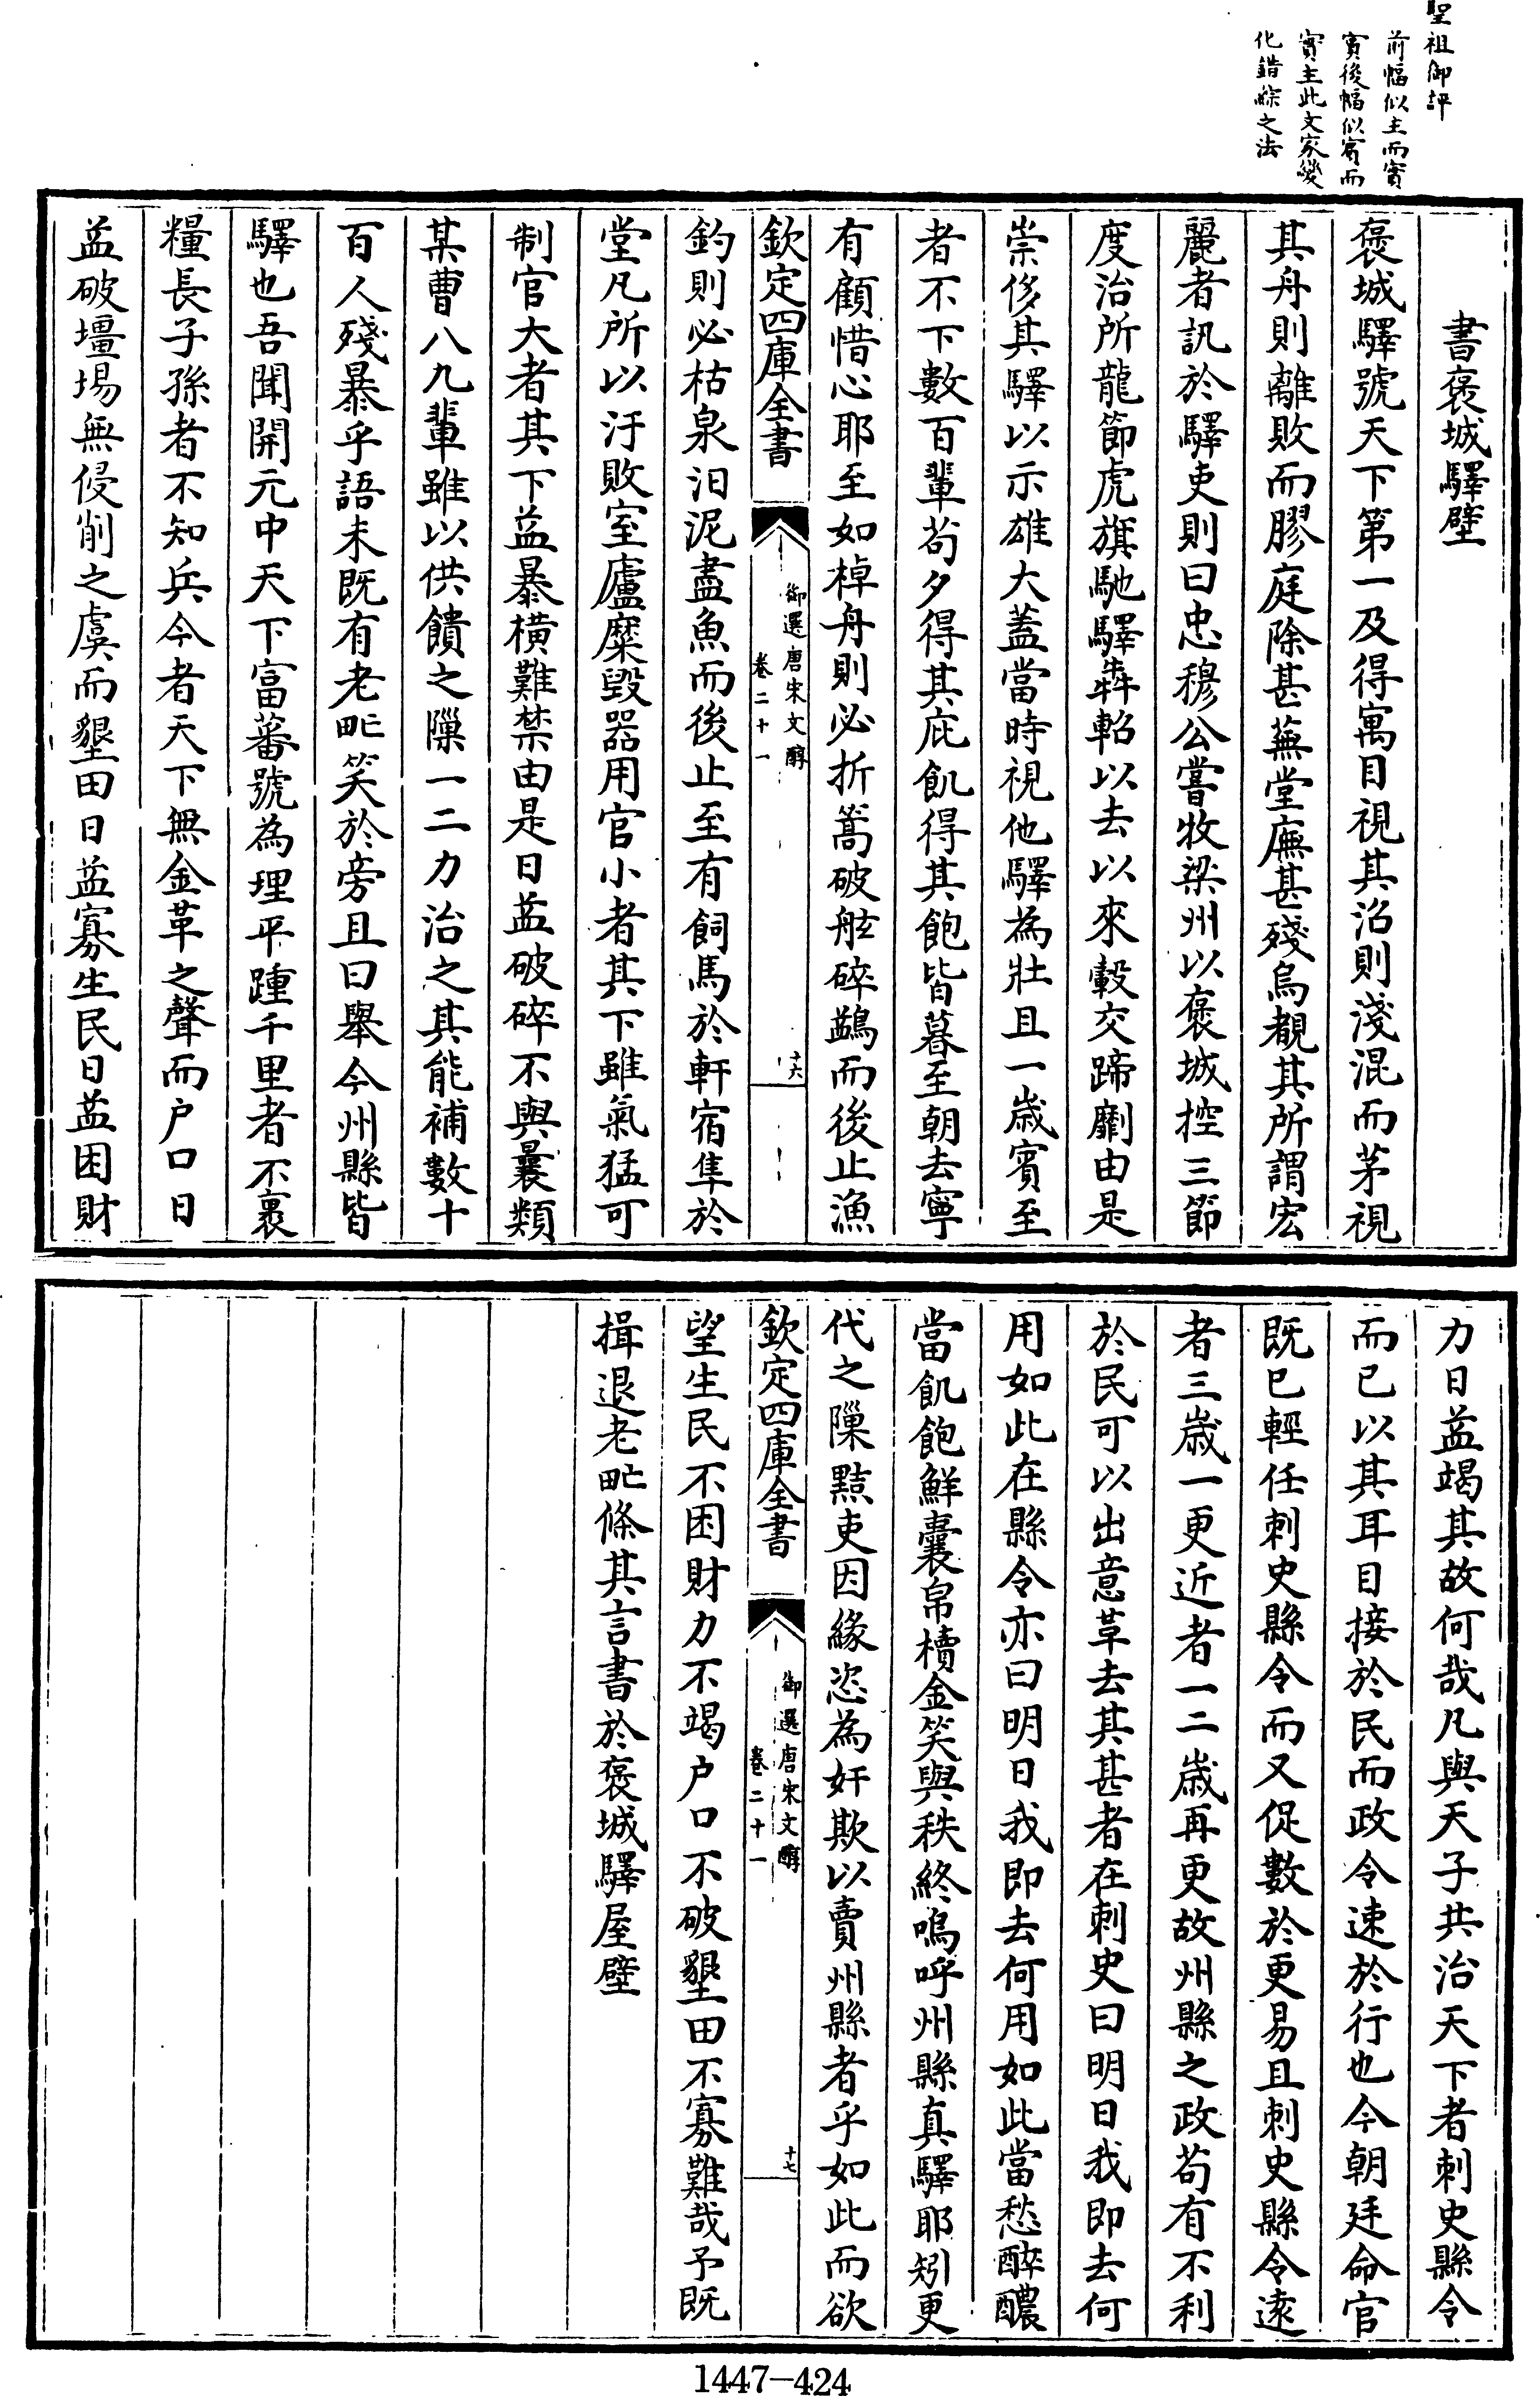 聖祖御評
前幅似主而實
賓後幅似賓而
實主此文家變
化錯綜之法
書褒城驛壁
褒城驛號天下第一及得寓目視其沼則淺混而茅視
其舟則離敗而膠庭除甚蕪堂廡甚殘烏覩其所謂宏
麗者訊於驛吏則曰忠穆公嘗牧梁州以褒城控三節
度治所龍節虎旗馳驛犇軺以去以來轂交蹄劘由是
崇侈其驛以示雄大蓋當時視他驛為壯且一歲賓至
者不下數百輩苟夕得其庇飢得其飽皆暮至朝去寧
有顧惜心耶至如棹舟則必折篙破舷碎鷁而後止漁
欽定四庫全書
御選唐宋文醇
卷二十一
十六
釣則必枯泉汩泥盡魚而後止至有飼馬於軒宿隼於
堂凡所以汙敗室廬糜毀器用官小者其下雖氣猛可
制官大者其下益暴橫難禁由是日益破碎不與曩類
某曹八九輩雖以供饋之隟一二力治之其能補數十
百人殘暴乎語未既有老甿笑於旁且曰舉今州縣皆
驛也吾聞開元中天下富蕃號為理平踵千里者不裹
糧長子孫者不知兵今者天下無金革之聲而户口日
益破壃埸無侵削之虞而墾田日益寡生民日益困財
力日益竭其故何哉凡與天子共治天下者刺史縣令
而已以其耳目接於民而政令速於行也今朝廷命官
既已輕任刺史縣令而又促數於更易且刺史縣令逺
者三歲一更近者一二歲再更故州縣之政苟有不利
於民可以出意革去其甚者在刺史曰明日我即去何
用如此在縣令亦曰明日我即去何用如此當愁醉醲
當飢飽鮮囊帛櫝金笑與秩終嗚呼州縣真驛耶矧更
代之隟黠吏因緣恣為奸欺以賣州縣者乎如此而欲
欽定四庫全書
御選唐宋文醇
卷二十一
十七
望生民不困財力不竭户口不破墾田不寡難哉予既
揖退老甿條其言書於褒城驛屋壁
1447-424